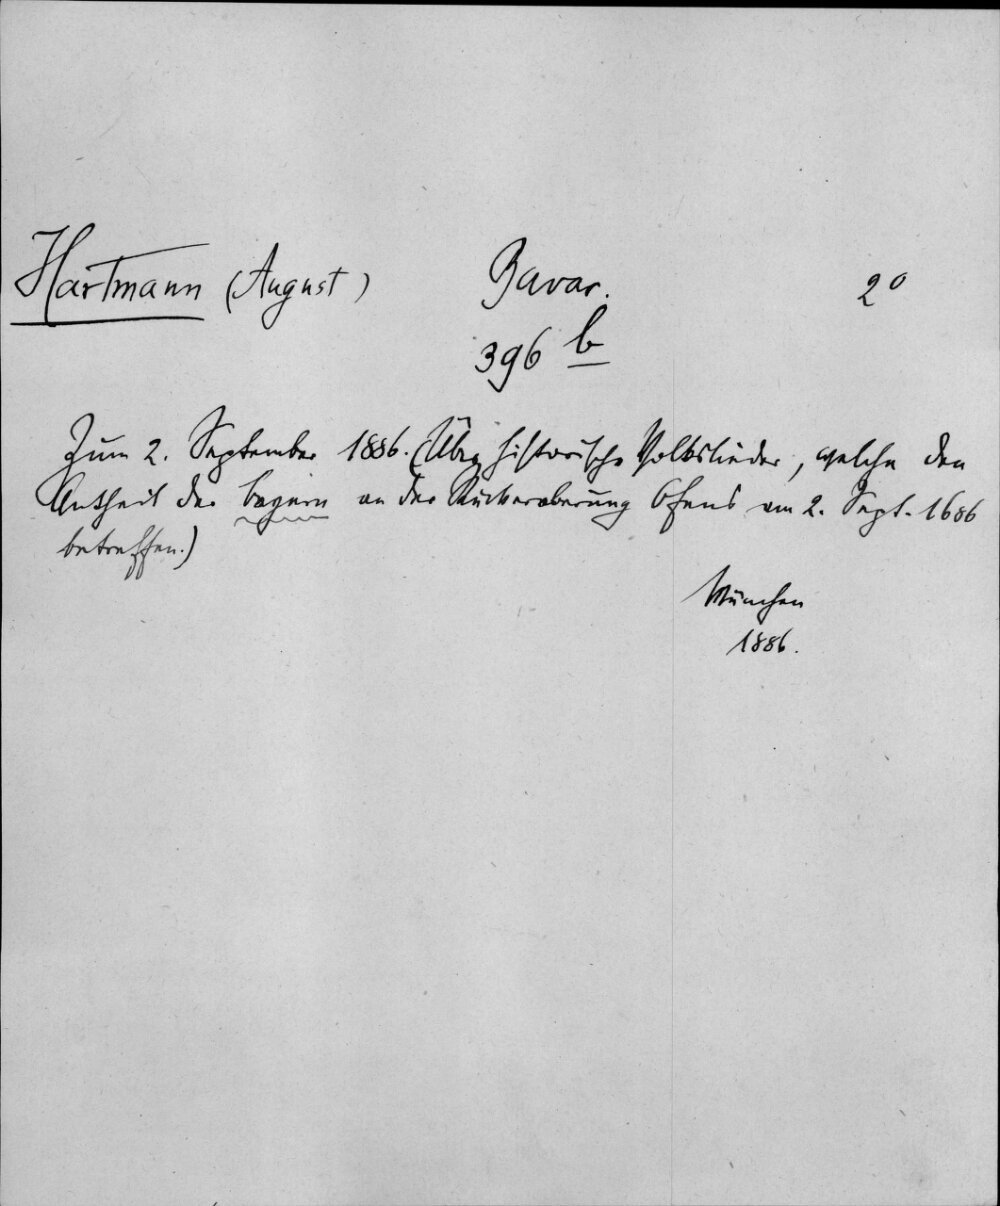 Hartmann (August) Bavar. 2°
396 b
Zum 2. September 1886. (Über historische Volkslieder, welche den
Antheil der Bayern an der Rückeroberung Ofens am 2. Sept. 1686
betreffen.)
München
1886.